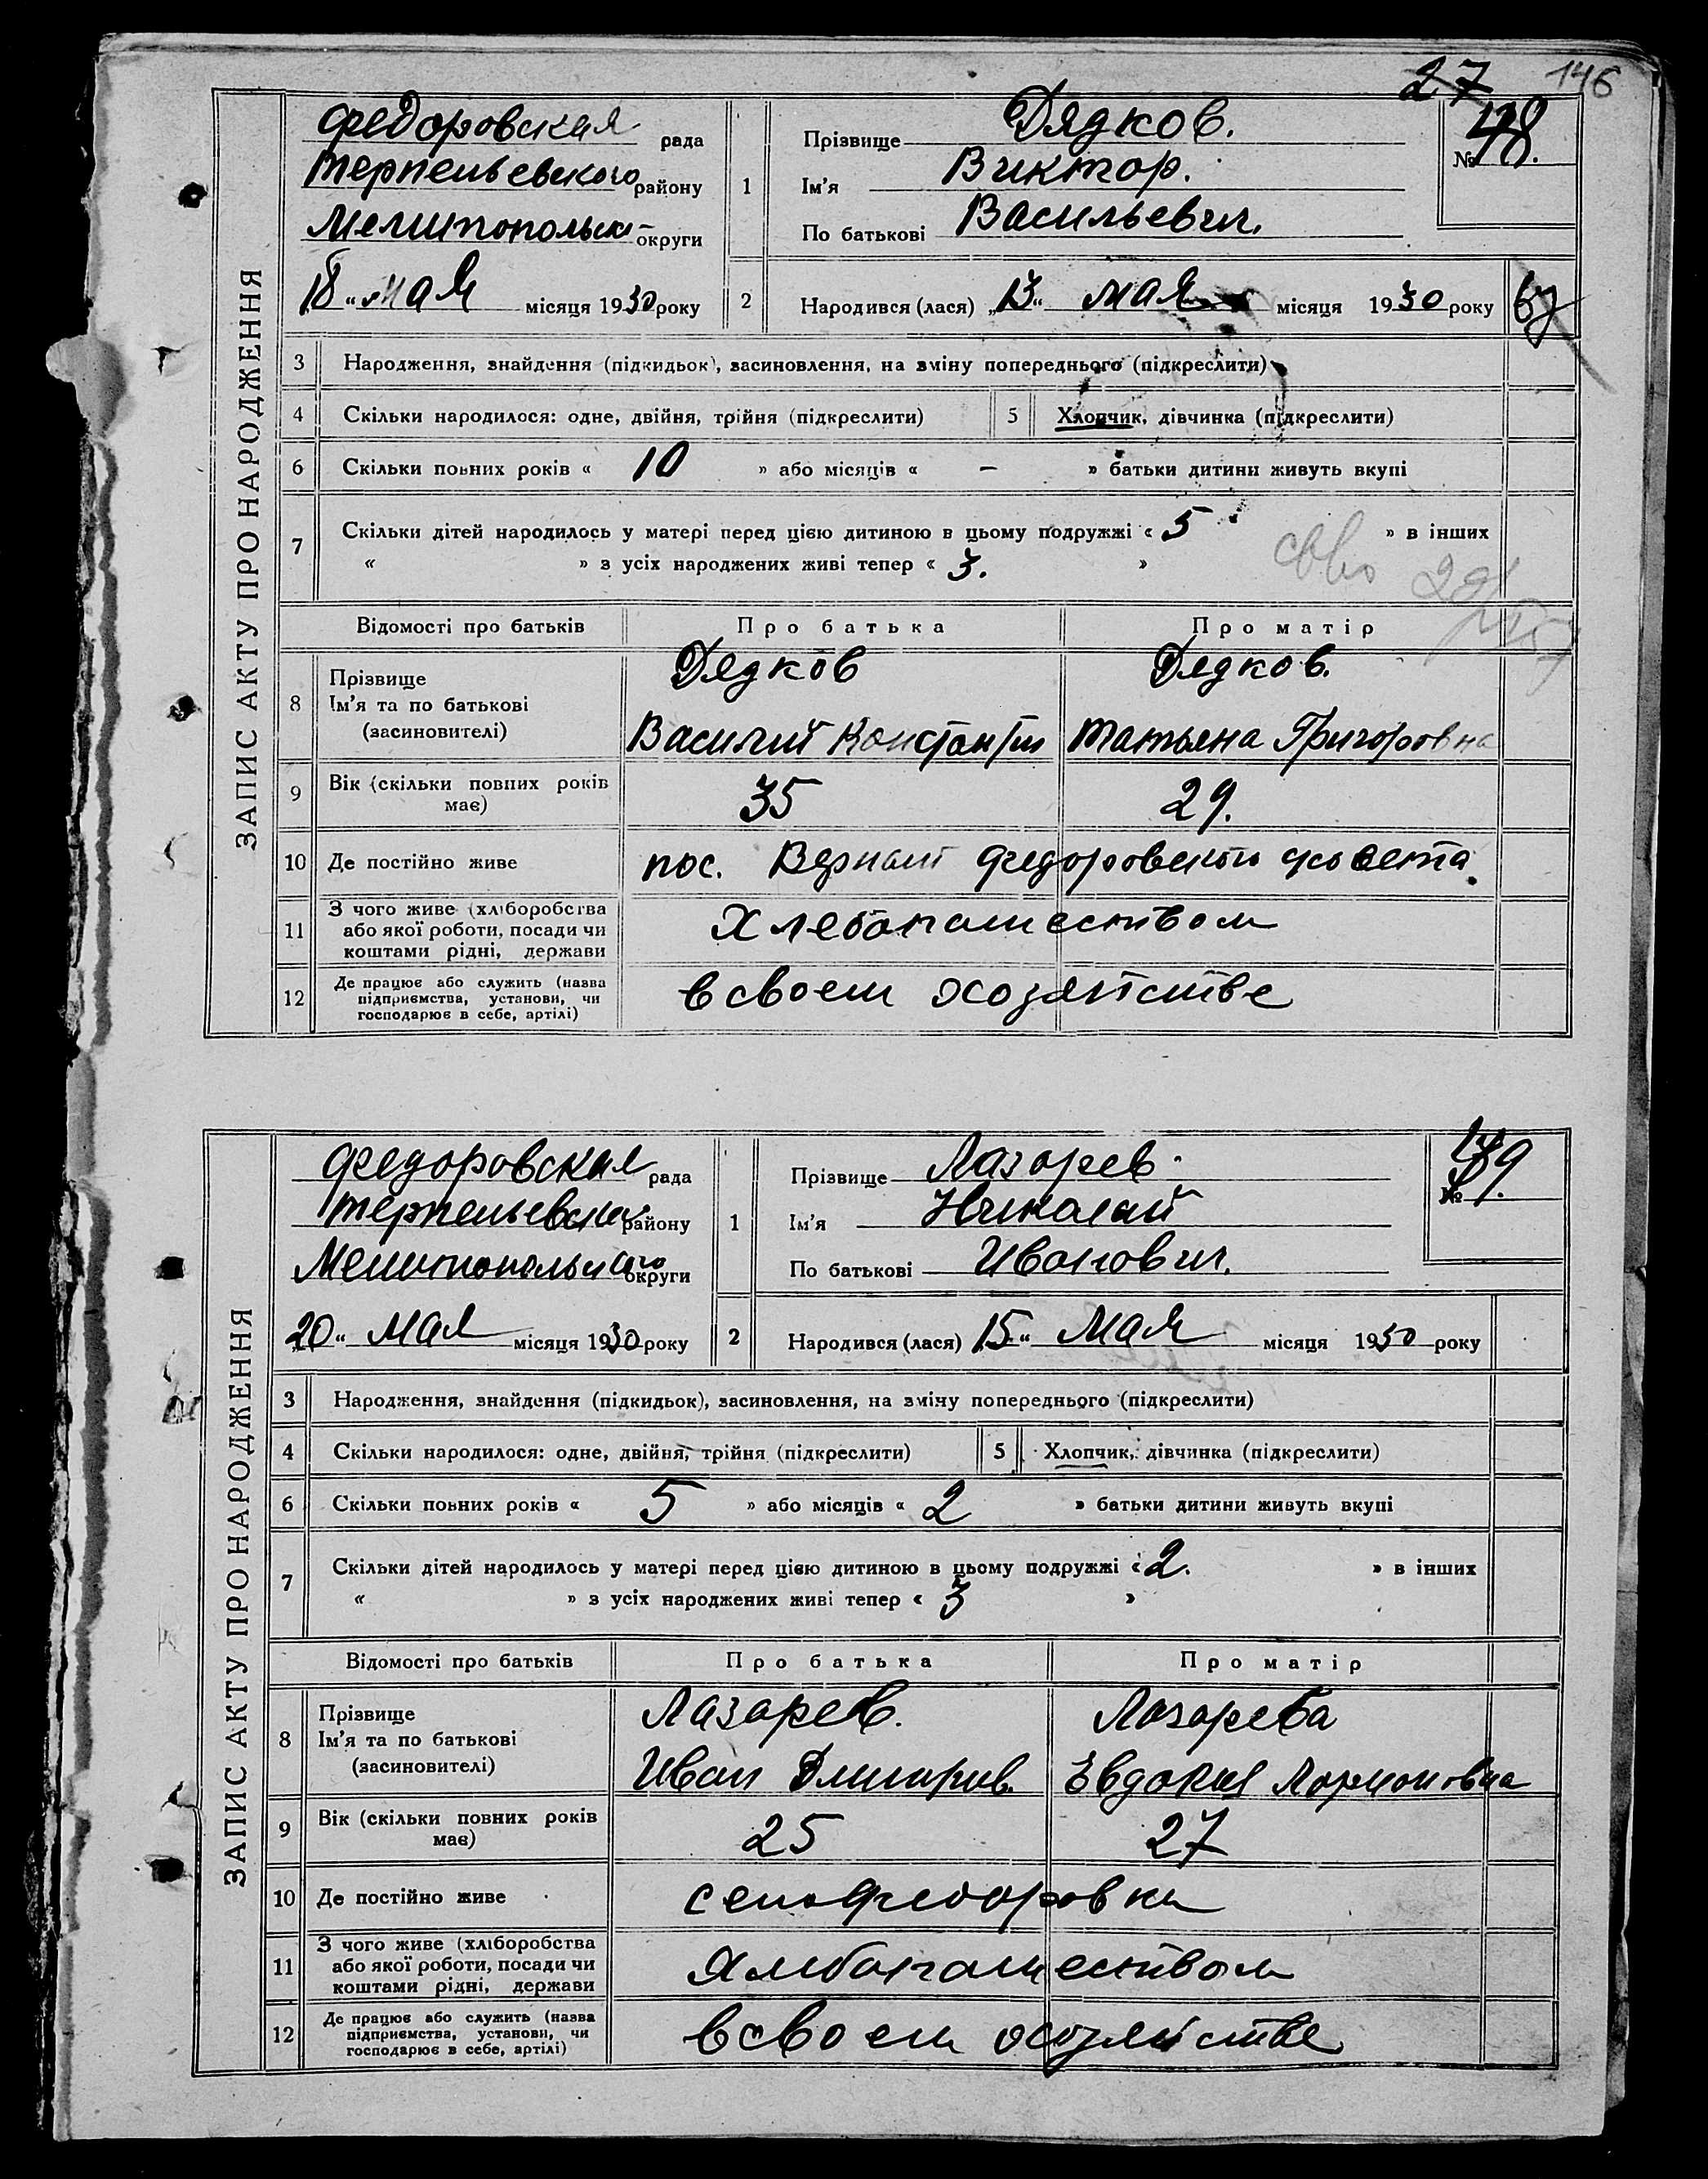 27 146
ЗАПИС АКТУ ПРО НАРОДЖЕННЯ
Федоровская рада
Терпеньевского району
Мелитопольск округи
18 „ мая місяця 1930 року
1 Прізвище Дядков.
Ім'я Виктор.
По батькові Васильевич.
№ 48.
2 Народився (лася) „13“ мая місяця 1930 року
3 Народження, знайдення (підкидьок), засиновлення, на зміну попереднього (підкреслити)
4 Скільки народилося: одне, двійня, трійня (підкреслити) 5 Хлопчик, дівчинка (підкреслити)
6 Скільки повних років « 10 » або місяців « – » батьки дитини живуть вкупі
7 Скільки дітей народилось у матері перед цією дитиною в цьому подружжі « 5 » в інших
« » з усіх народжених живі тепер « 3. »
Відомості про батьків Про батька Про матір
8 Прізвище Дядков Дядков.
Ім'я та по батькові
(засиновителі) Василий Константин Татьяна Григоровна
9 Вік (скільки повних років має) 35 29.
10 Де постійно живе пос. Федоровского с/совета
11 З чого живе (хліборобства
або якої роботи, посади чи
коштами рідні, держави Хлебопашеством
12 Де працює або служить (назва
підприємства, установи, чи
господарює в себе, артілі) в своем хозяйстве
ЗАПИС АКТУ ПРО НАРОДЖЕННЯ
Федоровская рада
Терпеньевского району
Мелитопольского округи
20 “ мая місяця 1930 року
1 Прізвище Лазарев.
Ім'я Николай
По батькові Иванович.
№ 49.
2 Народився (лася) 15 “ мая місяця 1930 року
3 Народження, знайдення (підкидьок), засиновлення, на зміну попереднього (підкреслити)
4 Скільки народилося: одне, двійня, трійня (підкреслити) 5 Хлопчик, дівчинка (підкреслити)
6 Скільки повних років « 5 » або місяців « 2 » батьки дитини живуть вкупі
7 Скільки дітей народилось у матері перед цією дитиною в цьому подружжі « 2. » в інших
« » з усіх народжених живі тепер « 3 »
Відомості про батьків Про батька Про матір
8 Прізвище Лазарев. Лазарева
Ім'я та по батькові
(засиновителі) Иван Дмитрив. Евдокия Лармоновна
9 Вік (скільки повних років має) 25 27
10 Де постійно живе село Федоровка
11 З чого живе (хліборобства
або якої роботи, посади чи
коштами рідні, держави Хлебопашеством
12 Де працює або служить (назва
підприємства, установи, чи
господарює в себе, артілі) в своем хозяйстве